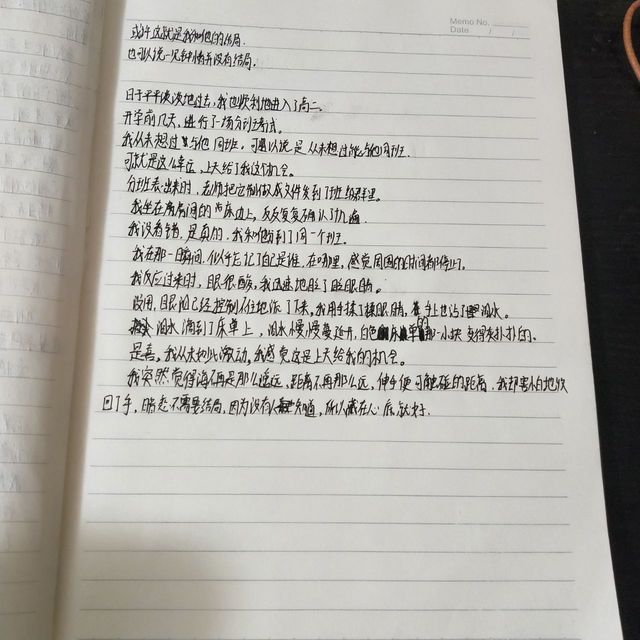 Memo No.
Date / /
或许这就是我和他的结局.
也可以说一见钟情并没有结局.
日子平平淡淡地过去,我也顺利地进入了高二.
开学前几天,进行了一场分班考试.
我从未想过与他同班.可以说是从未想过能与他同班.
可就是这么幸运,上天给了我这个机会.
分班表出来时,老师把它制做成文件发到了班级群里.
我坐在房间的床边上,反反复复确认了几遍.
我没看错,是真的,我和他分到了同一个班.
我在那一瞬间,似乎忘记了自己是谁,在哪里,感觉周围的时间都停止了.
我反应过来时,眼很酸,我迅速地眨了眨眼睛.
没用,眼泪已经控制不住地流了下来,我用手揉了揉眼睛,手上也沾了泪水.
泪水滴到了床单上,泪水慢慢蔓延开,白色床单的那一小块变得灰扑扑的.
是喜,我从未如此激动,我感觉这是上天给我的机会.
我突然觉得海不再是那么遥远,距离不再那么远,伸手便可触碰的距离.我却害怕地收
回了手,暗恋不需要结局,因为没有人知道,所以藏在心底就好.